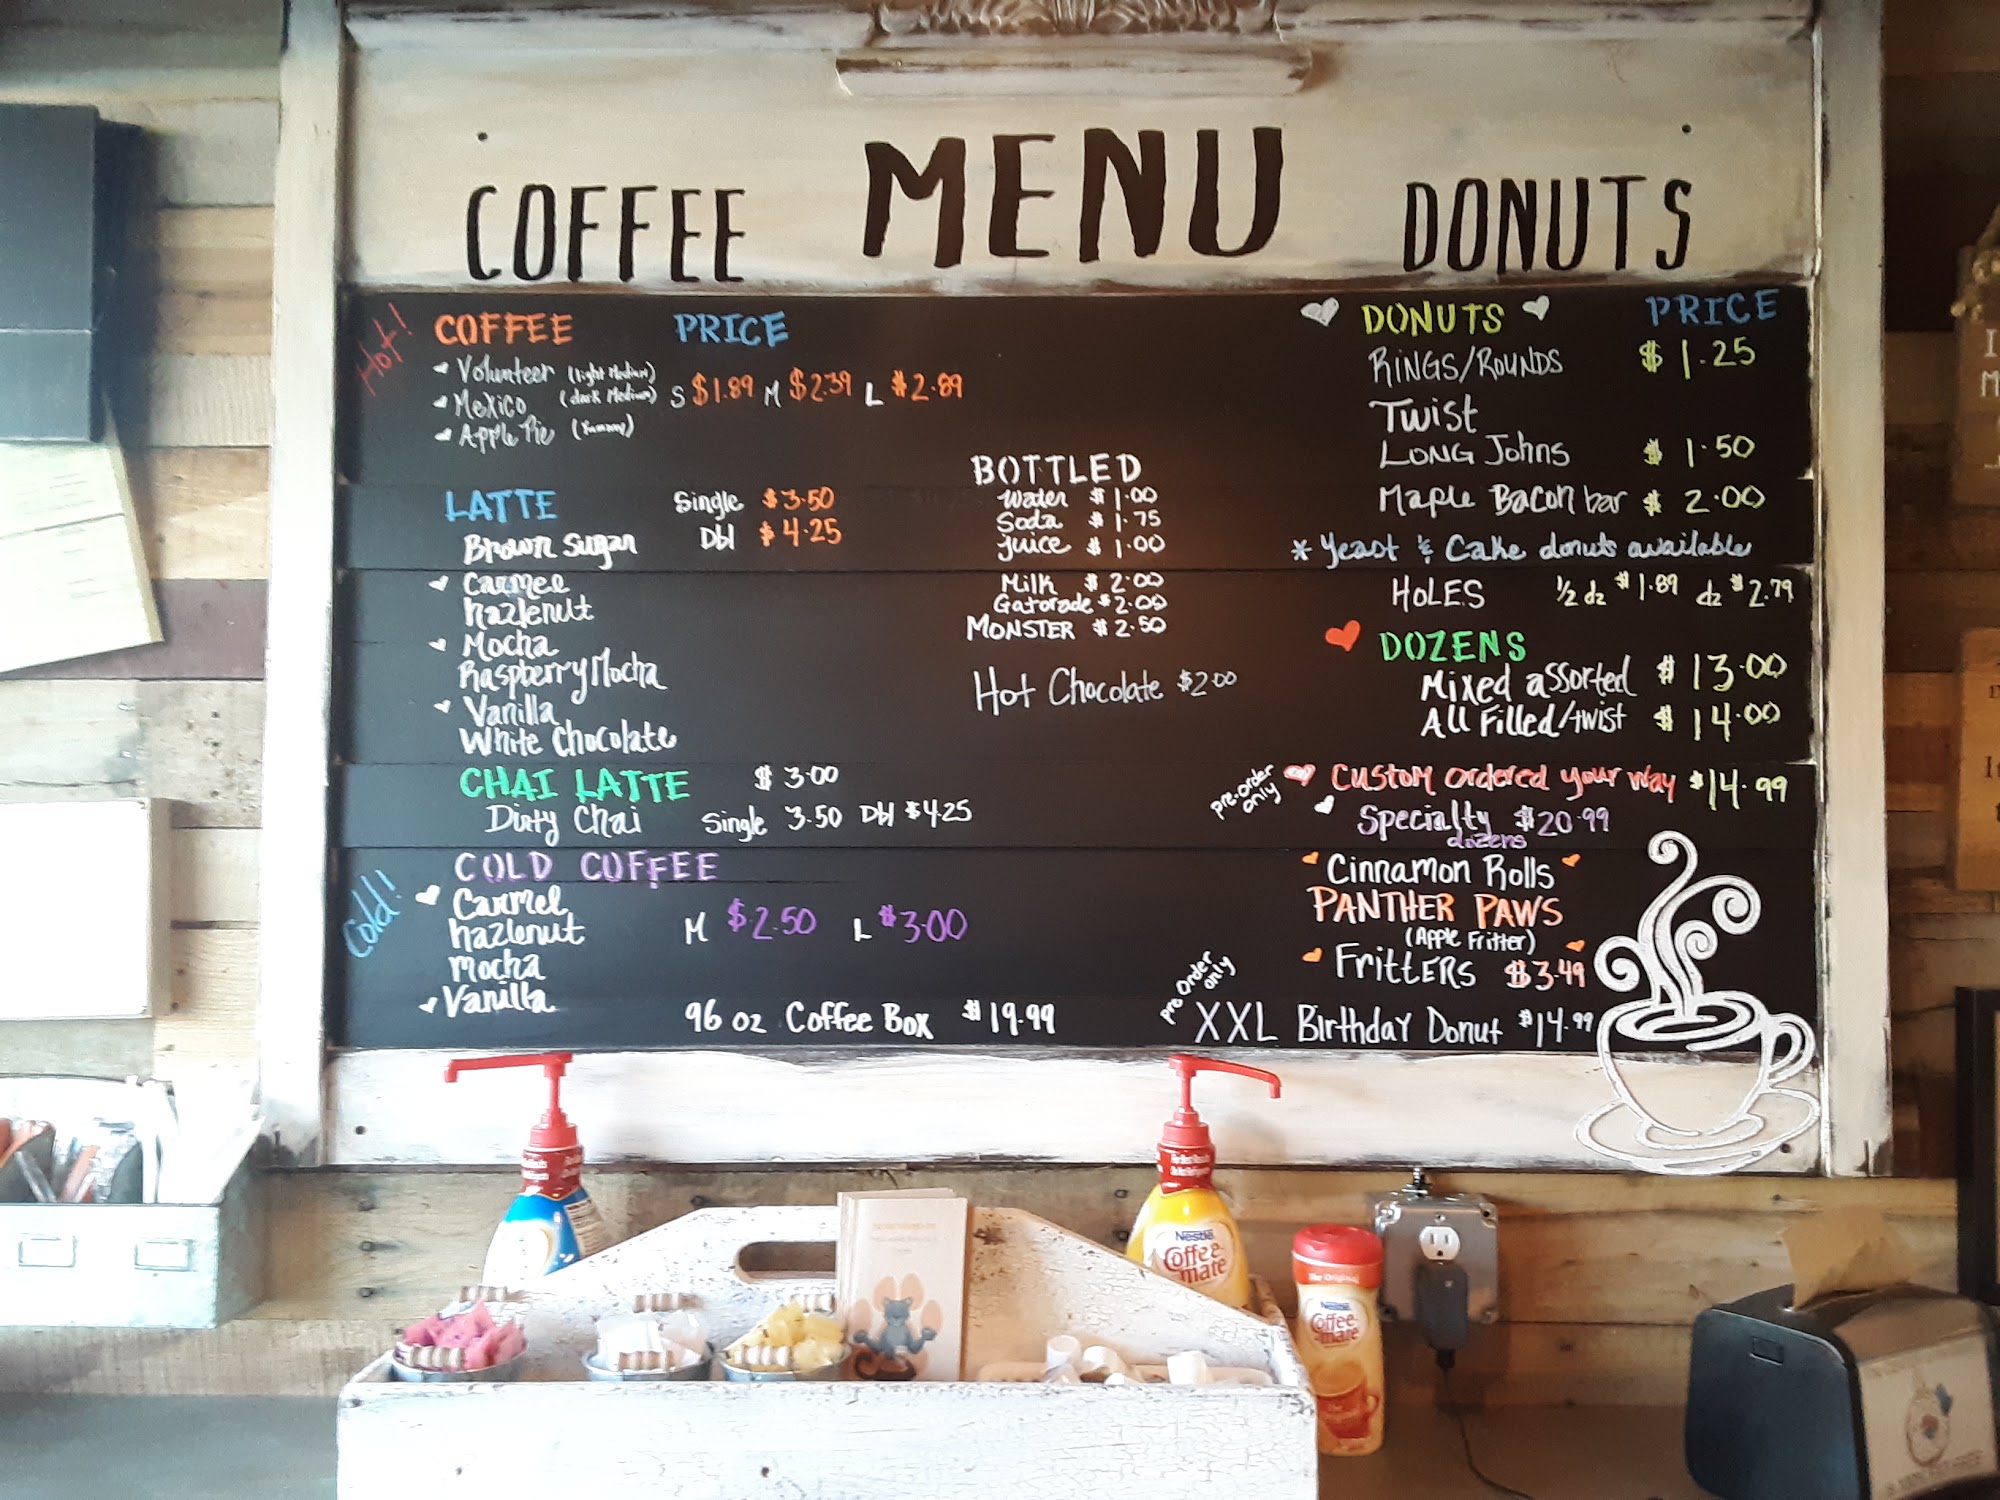 COFFEE MENU DONUTS
Hot!
COFFEE PRICE
Volunteer (light Medium)
Mexico (dark Medium)
Apple Pie (Yummy)
S $1.89 M $2.39 L $2.89
LATTE Single $3.50
Dbl $4.25
Brown Sugar
Carmel
hazlenut
Mocha
Raspberry Mocha
Vanilla
White Chocolate
CHAI LATTE $3.00
Dirty Chai Single 3.50 Dbl $4.25
Cold!
COLD COFFEE
Carmel
hazlenut
Mocha
Vanilla
M $2.50 L $3.00
96 oz Coffee Box $19.99
BOTTLED
Water $1.00
Soda $1.75
juice $1.00
Milk $2.00
Gatorade $2.00
MONSTER $2.50
Hot Chocolate $2.00
DONUTS PRICE
RINGS/ROUNDS $1.25
Twist
LONG Johns $1.50
Maple Bacon bar $2.00
* Yeast & Cake donuts available
HOLES 1/2 dz $1.89 dz $2.79
DOZENS
Mixed assorted $13.00
All Filled/twist $14.00
pre-order only
Custom ordered your way $14.99
Specialty $20.99
dozens
Cinnamon Rolls
PANTHER PAWS
(Apple Fritter)
FritteRS $3.49
pre order only
XXL Birthday Donut $14.99
Nestlé
Coffee mate
The Original
Nestlé
Coffee mate